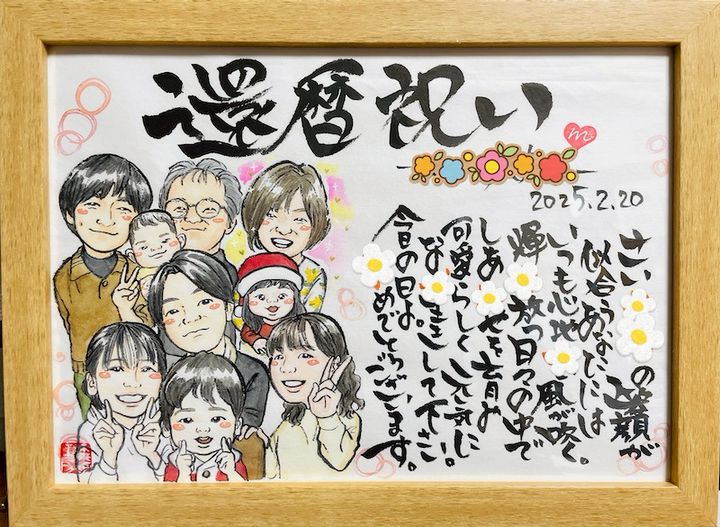 還暦祝い
m
2025.2.20
さい の笑顔が
似合うあなたには
いつも心地 風が吹く。
輝 放つ日々の中で
しあ せを育み
可愛らしく元気に
な 生きして下さい。
今日の日おめでとうございます。